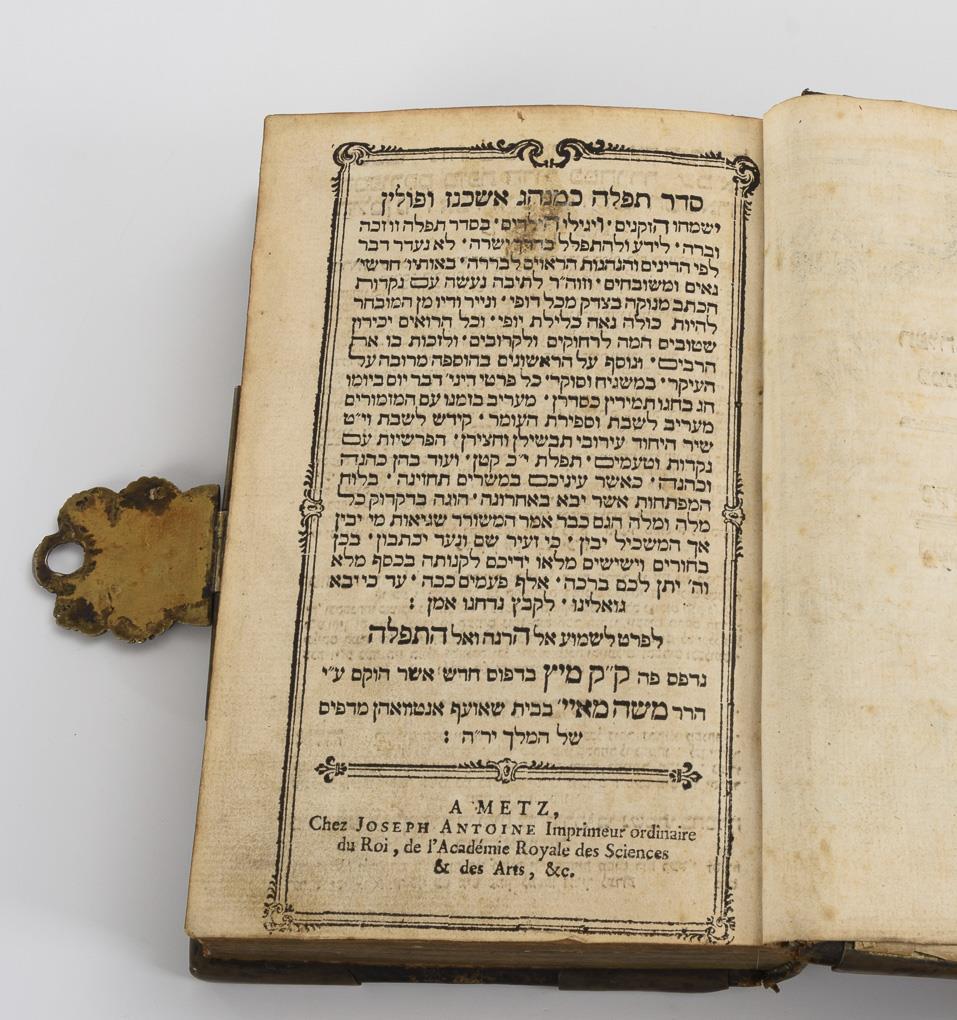 סדר תפלה כמנהג אשכנז ופולין
ישמחו הזקנים · ויגילו הילדים · בסדר תפלה זו זכה
וברה · לידע ולהתפלל בדרך ישרה · לא נעדר דבר
לפי הדינים והנהגות הראוים לבררה · באותיו׳ חדשי׳
נאים ומשובחים · וזוה״ר לתיבה נעשה עם נקדות
הכתב מנוקה בצדק מכל דופי · ונייר ודיו מן המובחר
להיות כולה נאה כלילת יופי · וכל הרואים יכירון
שטובים המה לרחוקים ולקרובים · ולזכות בו את
הרבים · ונוסף על הראשונים בהוספה מרובה על
העיקר · במשגיח וסוקר · כל פרטי דיני׳ דבר יום ביומו
חג בחגו תמידין כסדרן · מעריב בזמנו עם המזמורים
מעריב לשבת וספירת העומר · קידש לשבת וי״ט
שיר היחוד עירובי תבשילן וחצירן · הפרשיות עם
נקדות וטעמים · תפלת י״כ קטן · ועוד בהן כהנה
וכהנה · כאשר עיניכם במשרים תחזינה · בלוח
המפתחות אשר יבא באחרונה · הוגה בדקדוק כל
מלה ומלה הגם כבר אמר המשורר שגיאות מי יבין
אך המשכיל יבין · כי זעיר שם ונער יכתבון · בכן
בחורים וישישים מלאו ידיכם לקנותה בכסף מלא
וה׳ יתן לכם ברכה · אלף פעמים ככה · עד כי יבא
גואלינו · לקבץ נדחנו אמן :
לפרט לשמוע אל הרנה ואל התפלה
נדפס פה ק״ק מיץ בדפוס חדש אשר הוקם ע״י
הרר משה מאיי׳ בבית שאועף אנטוואהן מדפיס
של המלך יר״ה :
A METZ,
Chez JOSEPH ANTOINE Imprimeur ordinaire
du Roi, de l'Académie Royale des Sciences
& des Arts, &c.